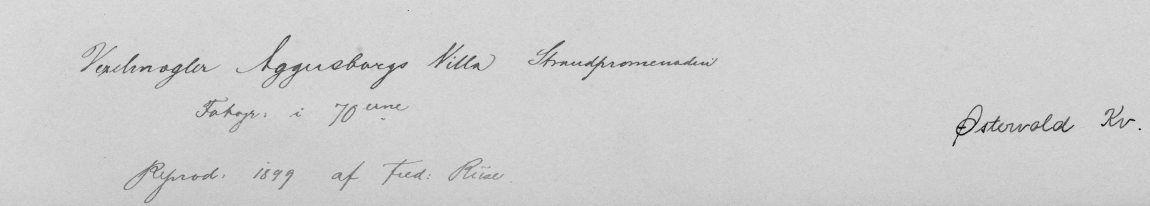 Vexelmægler Aggersborgs Villa Strandpromenaden
Fotogr. i 70erne
Østervold Kv.
Reprod. 1899 af Fred: Riise.